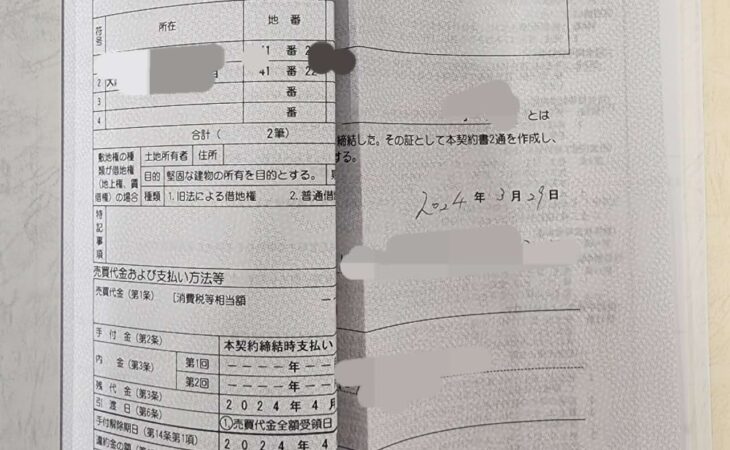 符号 所在 地番
41番2
2 大 41番22
3 番
4 番
合計( 2筆)
敷地権の種類が借地権(地上権、賃借権)の場合
土地所有者 住所
目的 堅固な建物の所有を目的とする。
種類 1. 旧法による借地権 2. 普通借
特記事項
売買代金および支払い方法等
売買代金(第1条) [消費税等相当額
手付金(第2条) 本契約締結時支払い
内金(第3条) 第1回 ----年--
第2回 ----年--
残代金(第3条) 2024年4月
引渡日(第6条) ①売買代金全額受領日
手付解除期日(第14条第1項) 2024年4
違約金の額(第
とは
締結した。その証として本契約書2通を作成し、
する。
2024年3月29日